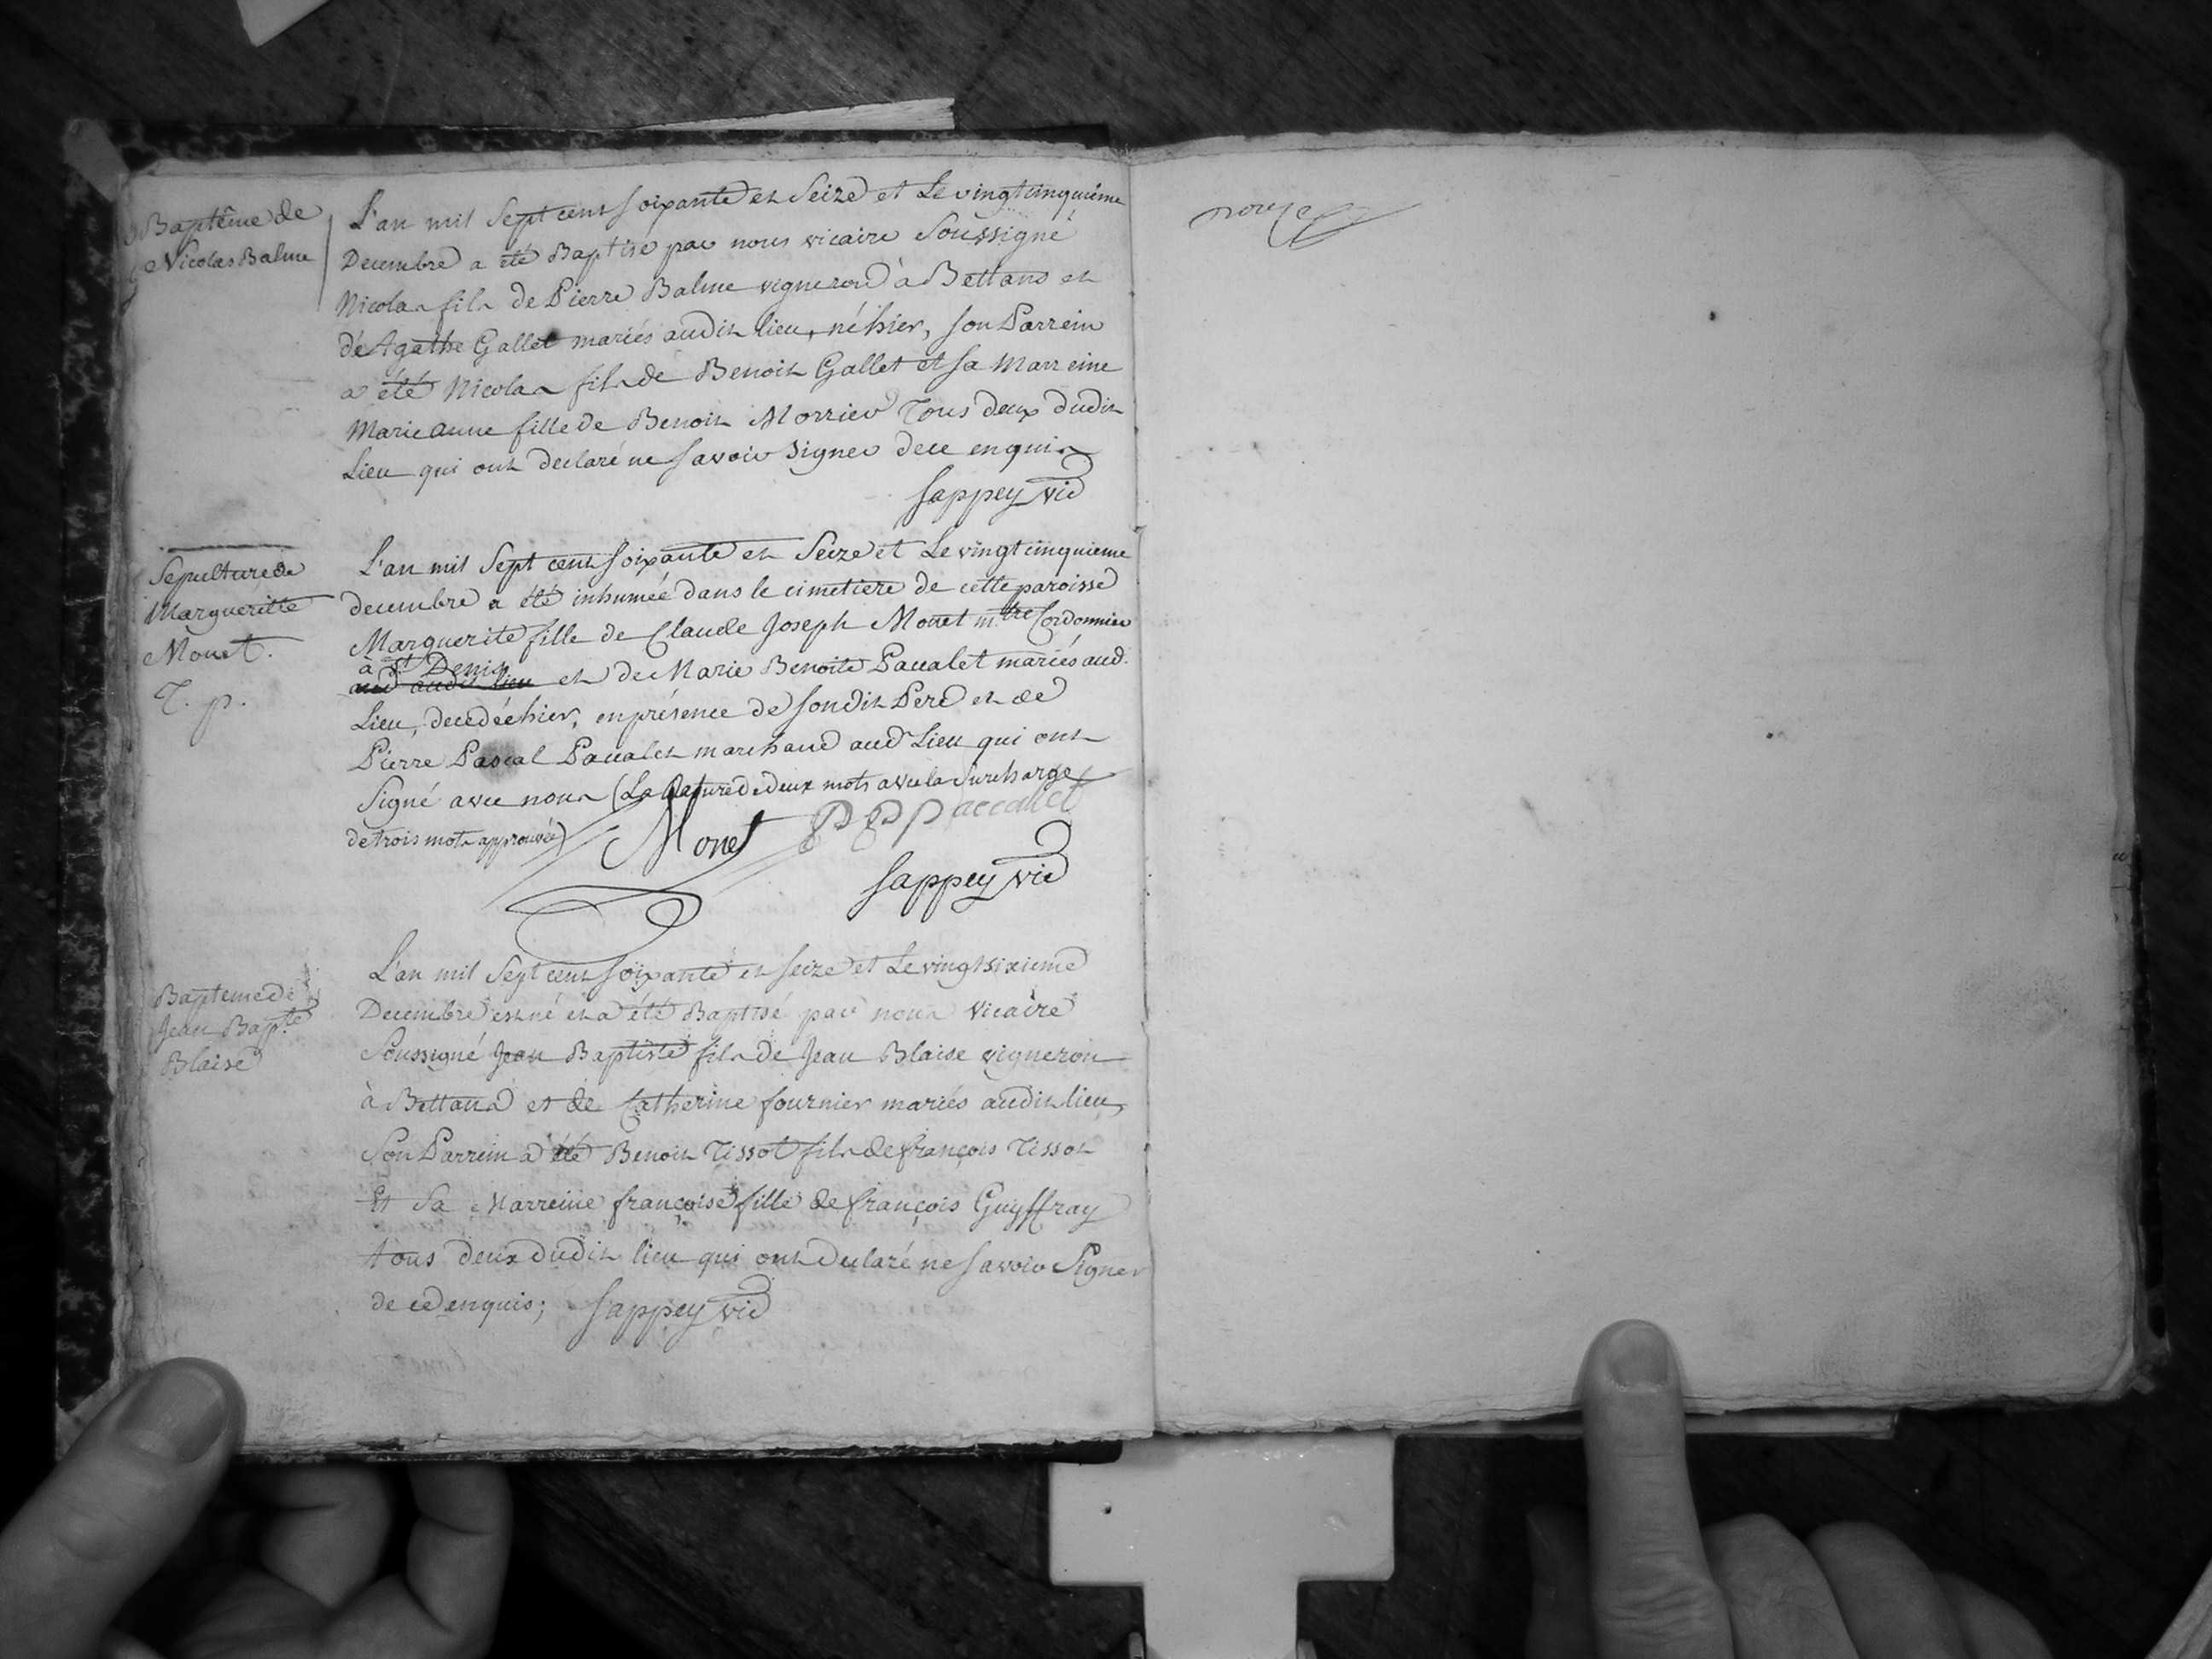 Baptême de
Nicolas Balme
L'an mil Sept cent soixante et Seize et Le vingtcinquième
Decembre a été Baptisé par nous vicaire Soussigné
Nicolas fils de Pierre Balme vigneron à Bettans et
de Agathe Gallet mariés audit lieu, né hier, son Parrein
a été Nicolas fils de Benoit Gallet et sa Marreine
Marieanne fille de Benoit Morrier Tous deux dudit
Lieu qui ont declaré ne savoir signer de ce enquis
Sappey vic
Sepulture de
Margueritte
Monet.
T. p.
L'an mil Sept cent soixante et Seize et Le vingt cinquieme
decembre a été inhumée dans le cimetiere de cette paroisse
Marguerite fille de Claude Joseph Monet mtre Cordonnier
à St Denis
audit lieu et de Marie Benoite Pacalet mariés aud.
Lieu, decedée hier, en présence de sondit Pere et de
Pierre Pascal Pacalet marchand aud Lieu qui ont
Signé avec nous (La Rature de deux mots avec la Surcharge
de trois mots approuvée)
Monet
P P Paccalet
Sappey vic
Bapteme de
Jean Bapte
Blaise
L'an mil Sept cent soixante et seize et Le vingtsixieme
Decembre est né et a été Baptisé par nous Vicaire
Soussigné Jean Baptiste fils de Jean Blaise vigneron
à Bettans et de Catherine fournier mariés audit lieu,
Son Parrein a été Benoit Tissot fils de françois Tissot
Et Sa Marreine françoise fille de françois Guyffray
tous deux dudit lieu qui ont declaré ne savoir Signer
de ce enquis; Sappey vic